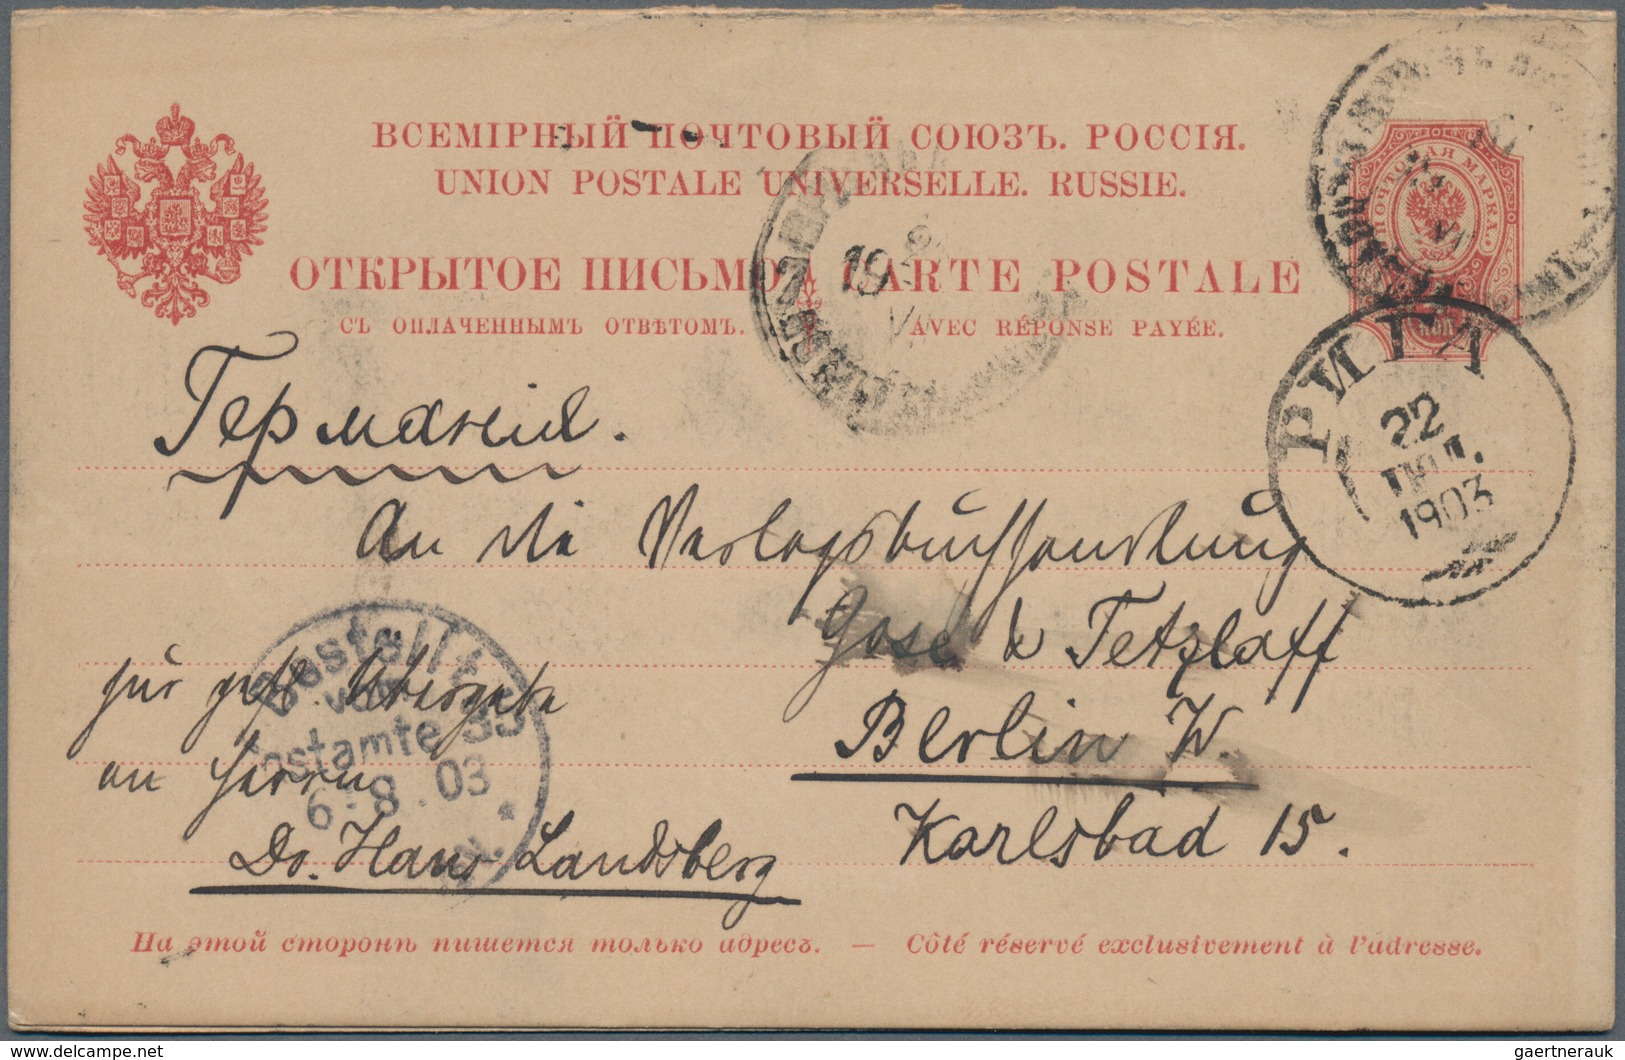 ВСЕМІРНЫЙ ПОЧТОВЫЙ СОЮЗЪ. РОССІЯ.
UNION POSTALE UNIVERSELLE. RUSSIE.
ОТКРЫТОЕ ПИСЬМО
CARTE POSTALE
СЪ ОПЛАЧЕННЫМЪ ОТВѢТОМЪ.
AVEC RÉPONSE PAYÉE.
ПОЧТОВАЯ МАРКА
19
РИГА
22
ІЮЛ.
1903
Германія.
An die Verlagsbuchhandlung
Gose & Tetzlaff
Berlin W.
Karlsbad 15.
für gefl. Übergabe
an Herrn
Dr. Hans Landsberg
Bestellt
vom
Postamte 35
6.8.03
На этой сторонѣ пишется только адресъ. — Côté réservé exclusivement à l'adresse.
www.delcampe.net
gaertnerauk